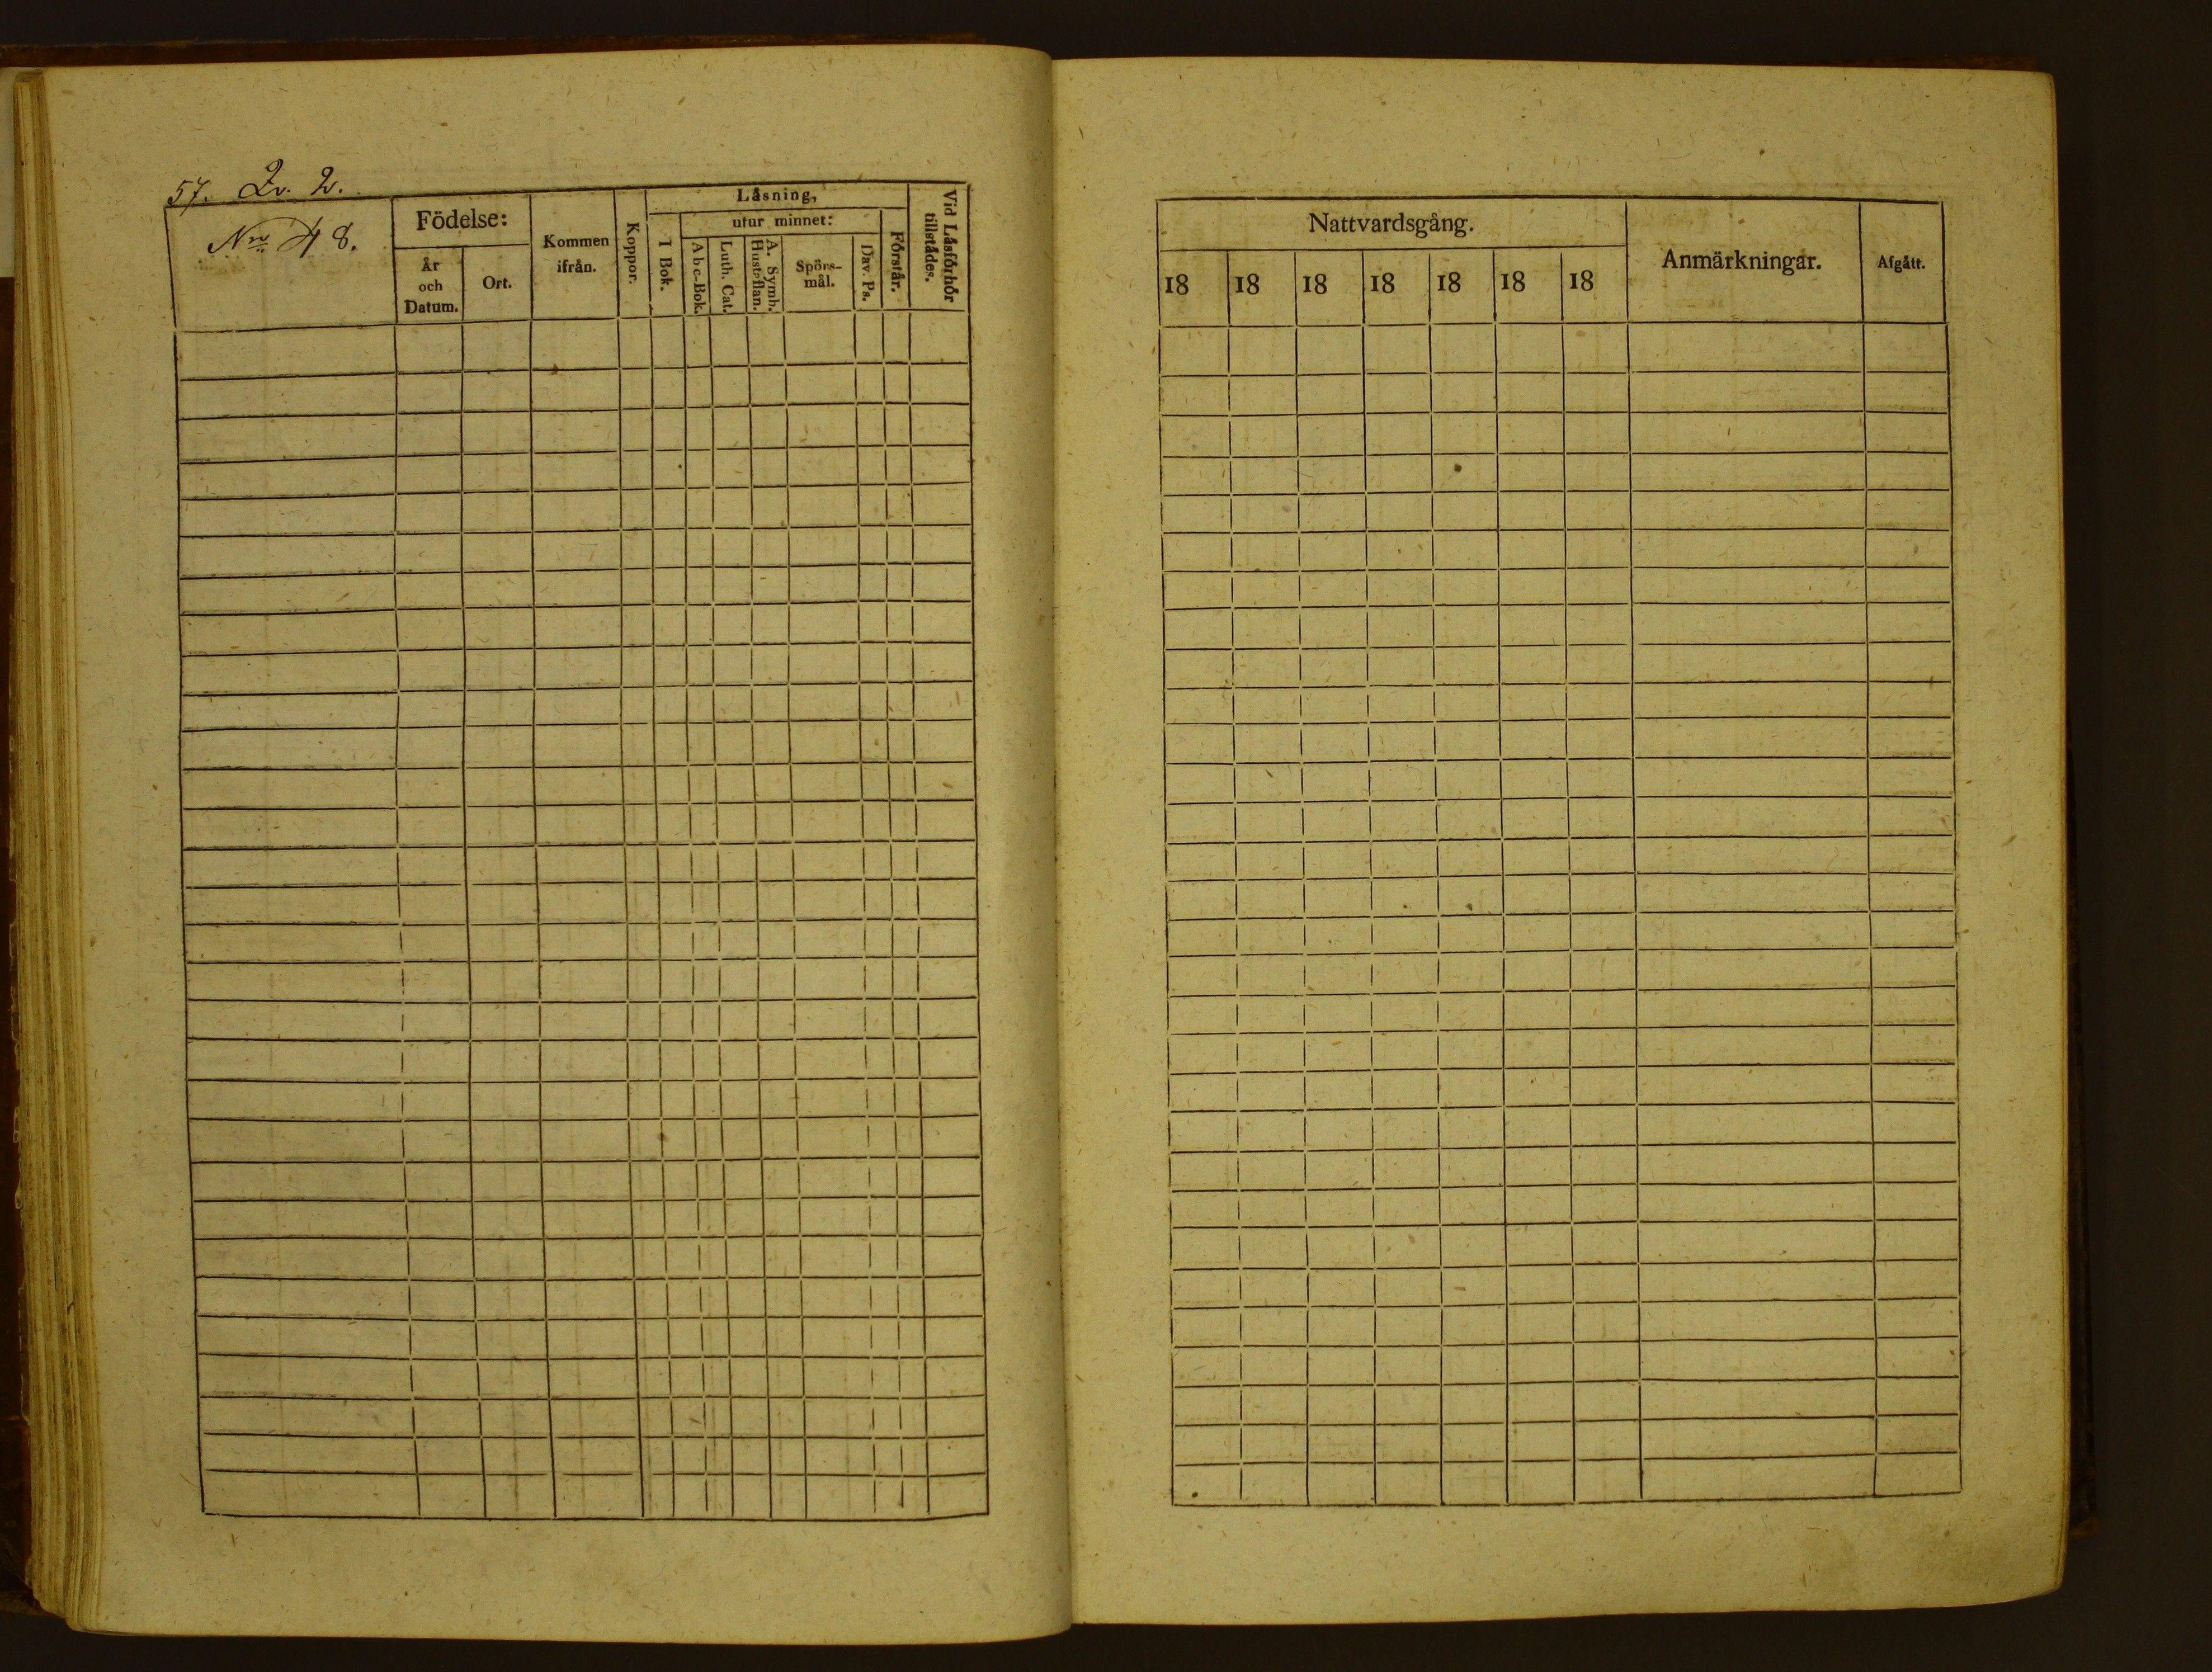 57. Qv. 2.
No 48.
Födelse:
År
och
Datum.
Ort.
Kommen
ifrån.
Koppor.
Läsning,
I Bok.
utur minnet:
Abc-Bok.
Luth. Cat.
A. Symb.
Hustaflan.
Spörs-
mål.
Dav. Ps.
Förstår.
Vid Läsförhör
tillstådes.
Nattvardsgång.
18 18 18 18 18 18 18
Anmärkningar.
Afgått.